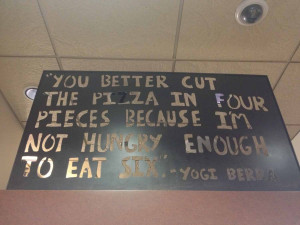 "YOU BETTER CUT
THE PIZZA IN FOUR
PIECES BECAUSE I'M
NOT HUNGRY ENOUGH
TO EAT SIX." - YOGI BERRA